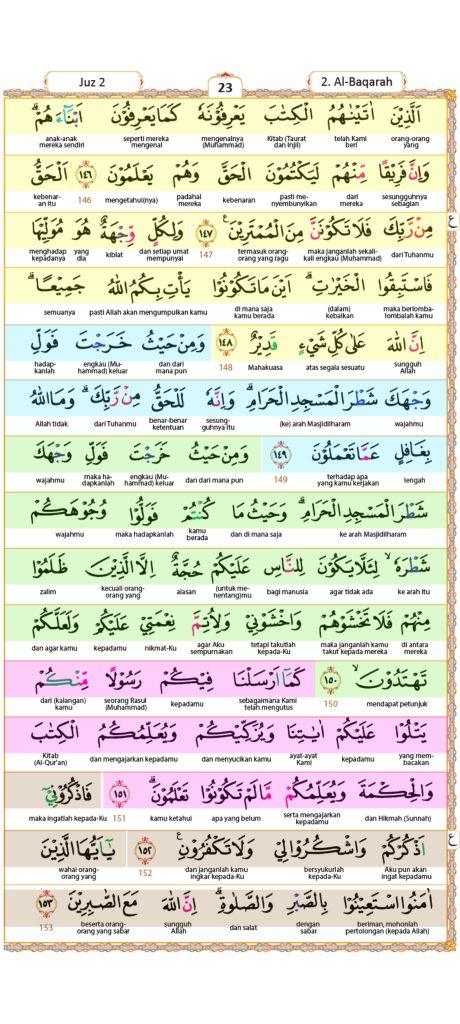 Juz 2
23
2. Al-Baqarah
اَلَّذِيْنَ اٰتَيْنٰهُمُ الْكِتٰبَ يَعْرِفُوْنَهٗ كَمَا يَعْرِفُوْنَ اَبْنَاۤءَهُمْۗ
orang-orang yang telah Kami beri Kitab (Taurat dan Injil) mengenalnya (Muhammad) seperti mereka mengenal anak-anak mereka sendiri
وَاِنَّ فَرِيْقًا مِّنْهُمْ لَيَكْتُمُوْنَ الْحَقَّ وَهُمْ يَعْلَمُوْنَ ١٤٦ اَلْحَقُّ
sesungguhnya sebagian dari mereka pasti me-nyembunyikan kebenaran padahal mereka mengetahui(nya) 146 kebenar-an itu
مِنْ رَّبِّكَ فَلَا تَكُوْنَنَّ مِنَ الْمُمْتَرِيْنَ ࣖ ١٤٧ وَلِكُلٍّ وِّجْهَةٌ هُوَ مُوَلِّيْهَا
ع
dari Tuhanmu maka janganlah sekali-kali engkau (Muhammad) termasuk orang-orang yang ragu 147 dan setiap umat mempunyai kiblat yang dia menghadap kepadanya
فَاسْتَبِقُوا الْخَيْرٰتِۗ اَيْنَ مَا تَكُوْنُوْا يَأْتِ بِكُمُ اللّٰهُ جَمِيْعًاۗ
maka berlomba-lombalah kamu (dalam) kebaikan di mana saja kamu berada pasti Allah akan mengumpulkan kamu semuanya
اِنَّ اللّٰهَ عَلٰى كُلِّ شَيْءٍ قَدِيْرٌ ١٤٨ وَمِنْ حَيْثُ خَرَجْتَ فَوَلِّ
sungguh Allah atas segala sesuatu Mahakuasa 148 dan dari mana pun engkau (Mu-hammad) keluar hadap-kanlah
وَجْهَكَ شَطْرَ الْمَسْجِدِ الْحَرَامِۗ وَاِنَّهٗ لَلْحَقُّ مِنْ رَّبِّكَۗ وَمَا اللّٰهُ
wajahmu (ke) arah Masjidilharam sesung-guhnya itu benar-benar ketentuan dari Tuhanmu Allah tidak
بِغَافِلٍ عَمَّا تَعْمَلُوْنَ ١٤٩ وَمِنْ حَيْثُ خَرَجْتَ فَوَلِّ وَجْهَكَ
lengah terhadap apa yang kamu kerjakan 149 dan dari mana pun engkau (Mu-hammad) keluar maka ha-dapkanlah wajahmu
شَطْرَ الْمَسْجِدِ الْحَرَامِۗ وَحَيْثُ مَا كُنْتُمْ فَوَلُّوْا وُجُوْهَكُمْ
ke arah Masjidilharam dan di mana saja kamu berada maka hadapkanlah wajahmu
شَطْرَهٗۙ لِئَلَّا يَكُوْنَ لِلنَّاسِ عَلَيْكُمْ حُجَّةٌ اِلَّا الَّذِيْنَ ظَلَمُوْا
ke arah itu agar tidak ada bagi manusia (untuk me-nentang)mu alasan kecuali orang-orang yang zalim
مِنْهُمْ فَلَا تَخْشَوْهُمْ وَاخْشَوْنِيْ وَلِاُتِمَّ نِعْمَتِيْ عَلَيْكُمْ وَلَعَلَّكُمْ
di antara mereka maka janganlah kamu takut kepada mereka tetapi takutlah kepada-Ku agar Aku sempurnakan nikmat-Ku kepadamu dan agar kamu
تَهْتَدُوْنَۙ ١٥٠ كَمَآ اَرْسَلْنَا فِيْكُمْ رَسُوْلًا مِّنْكُمْ
mendapat petunjuk 150 sebagaimana Kami telah mengutus kepadamu seorang Rasul (Muhammad) dari (kalangan) kamu
يَتْلُوْا عَلَيْكُمْ اٰيٰتِنَا وَيُزَكِّيْكُمْ وَيُعَلِّمُكُمُ الْكِتٰبَ
yang mem-bacakan kepadamu ayat-ayat Kami dan menyucikan kamu dan mengajarkan kepadamu Kitab (Al-Qur'an)
وَالْحِكْمَةَ وَيُعَلِّمُكُمْ مَّا لَمْ تَكُوْنُوْا تَعْلَمُوْنَۗ ١٥١ فَاذْكُرُوْنِيْٓ
dan Hikmah (Sunnah) serta mengajarkan kepadamu apa yang belum kamu ketahui 151 maka ingatlah kepada-Ku
اَذْكُرْكُمْ وَاشْكُرُوْا لِيْ وَلَا تَكْفُرُوْنِ ࣖ ١٥٢ يٰٓاَيُّهَا الَّذِيْنَ
ع
Aku pun akan ingat kepadamu bersyukurlah kepada-Ku dan janganlah kamu ingkar kepada-Ku 152 wahai orang-orang yang
اٰمَنُوا اسْتَعِيْنُوْا بِالصَّبْرِ وَالصَّلٰوةِۗ اِنَّ اللّٰهَ مَعَ الصّٰبِرِيْنَ ١٥٣
beriman, mohonlah pertolongan (kepada Allah) dengan sabar dan salat sungguh Allah beserta orang-orang yang sabar 153